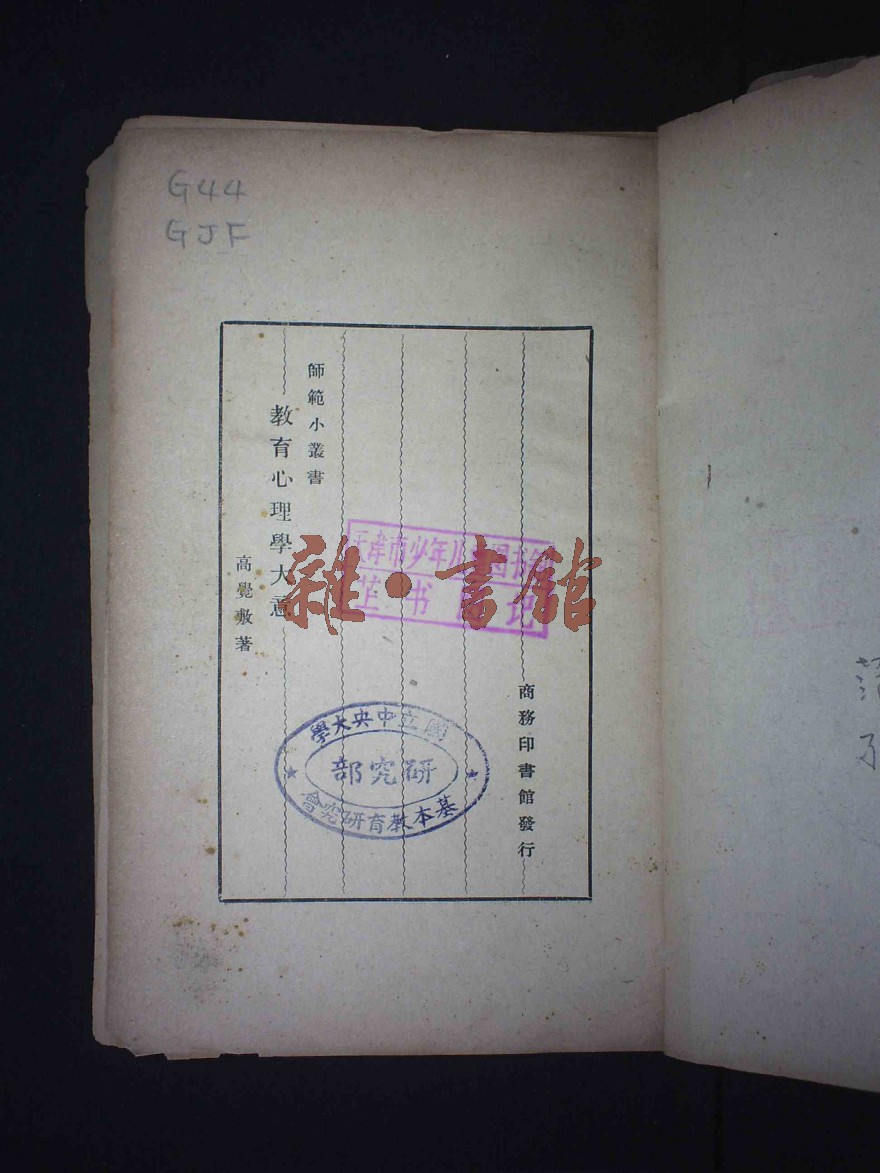 G44
GJF
師範小叢書
教育心理學大意
高覺敷著
商務印書館發行
天津市少年儿童图书馆
书
雜·書館
國立中央大學
研究部
基本教育研究會